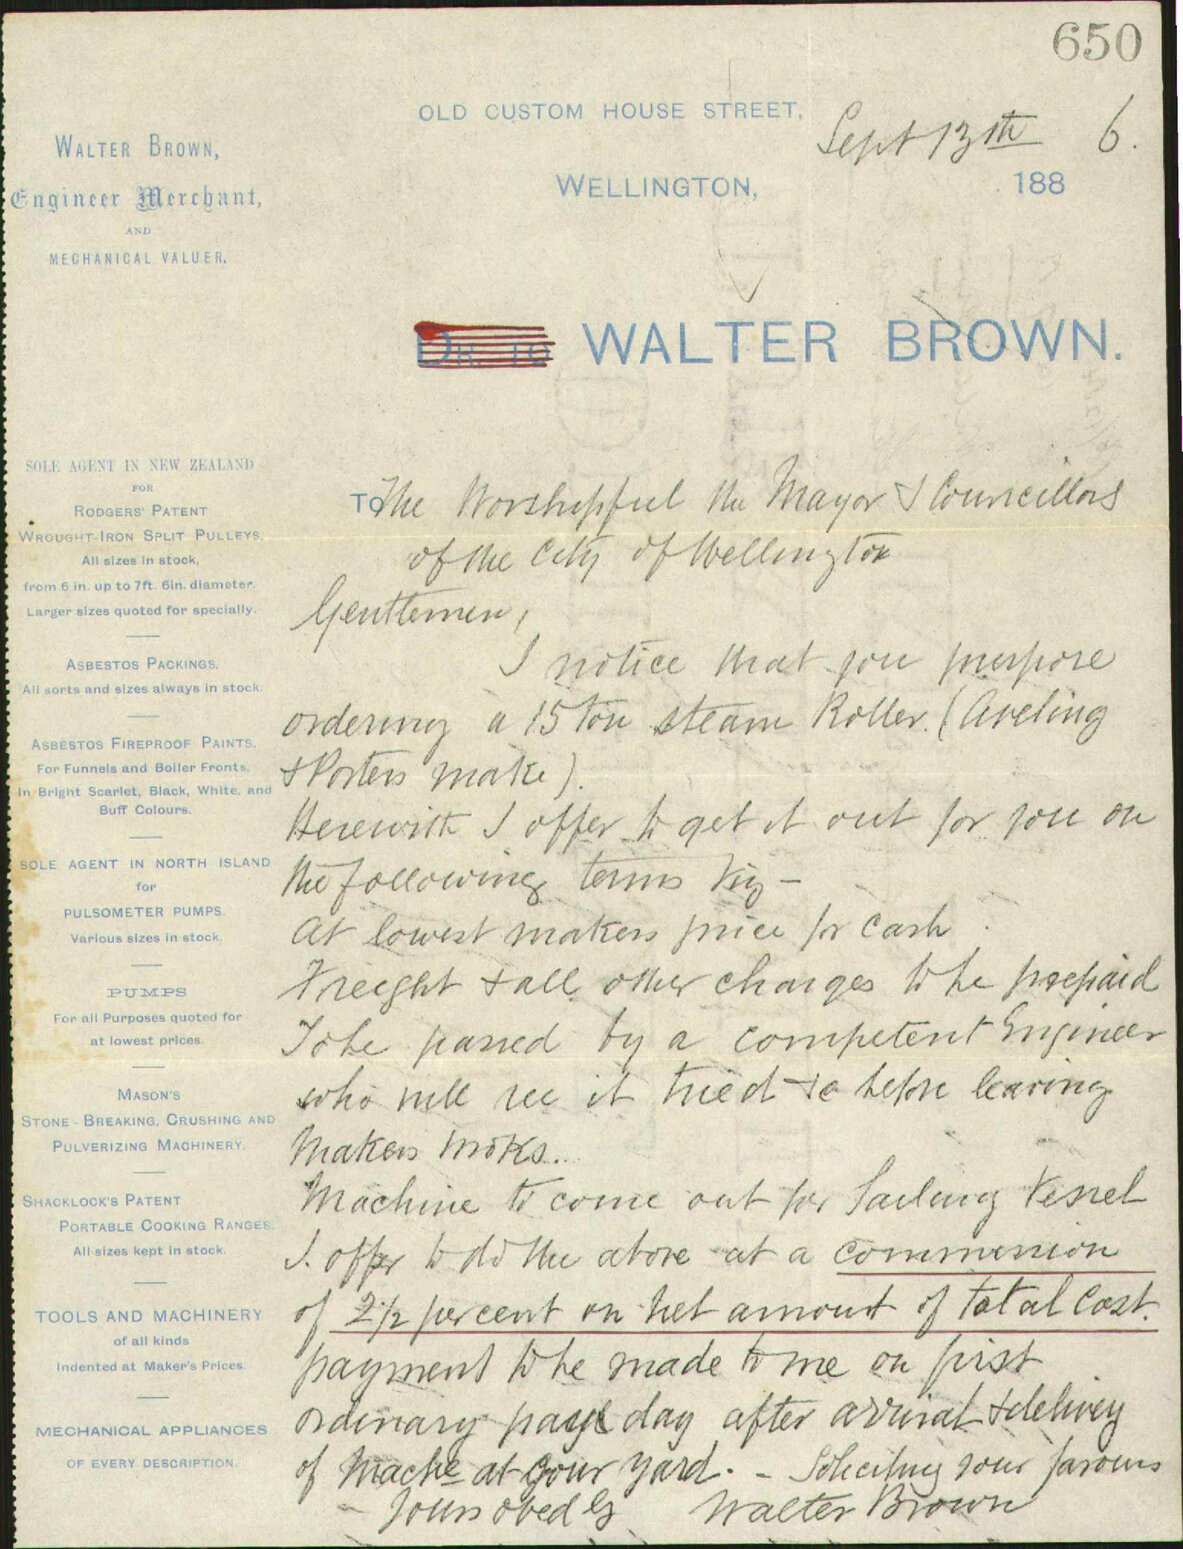 650
OLD CUSTOM HOUSE STREET,
Sept 13th 6.
WELLINGTON, 188
WALTER BROWN,
Engineer Merchant,
AND
MECHANICAL VALUER.
DR. TO WALTER BROWN.
SOLE AGENT IN NEW ZEALAND
FOR
RODGERS' PATENT
WROUGHT-IRON SPLIT PULLEYS.
All sizes in stock,
from 6 in. up to 7ft. 6in. diameter.
Larger sizes quoted for specially.
ASBESTOS PACKINGS,
All sorts and sizes always in stock.
ASBESTOS FIREPROOF PAINTS,
For Funnels and Boiler Fronts,
In Bright Scarlet, Black, White, and
Buff Colours.
SOLE AGENT IN NORTH ISLAND
for
PULSOMETER PUMPS.
Various sizes in stock.
PUMPS
For all Purposes quoted for
at lowest prices.
MASON'S
STONE-BREAKING, CRUSHING AND
PULVERIZING MACHINERY.
SHACKLOCK'S PATENT
PORTABLE COOKING RANGES,
All sizes kept in stock.
TOOLS AND MACHINERY
of all kinds
Indented at Maker's Prices.
MECHANICAL APPLIANCES
OF EVERY DESCRIPTION.
TO The Worshipful the Mayor & Councillors
of the City of Wellington
Gentlemen,
I notice that you purpose
ordering a 15 ton steam Roller. (Aveling
& Porters make).
Herewith I offer to get it out for you on
the following terms viz –
At lowest makers price for cash.
Freight & all other charges to be prepaid
To be passed by a competent Engineer
who will see it tried &c before leaving
Makers works..
Machine to come out per Sailing Vessel
I offer to do the above at a commission
of 2½ per cent on net amount of total cost.
payment to be made to me on first
ordinary pay day after arrival & delivey
of Mache at your yard. – Soliciting your favours
– Yours obedly Walter Brown